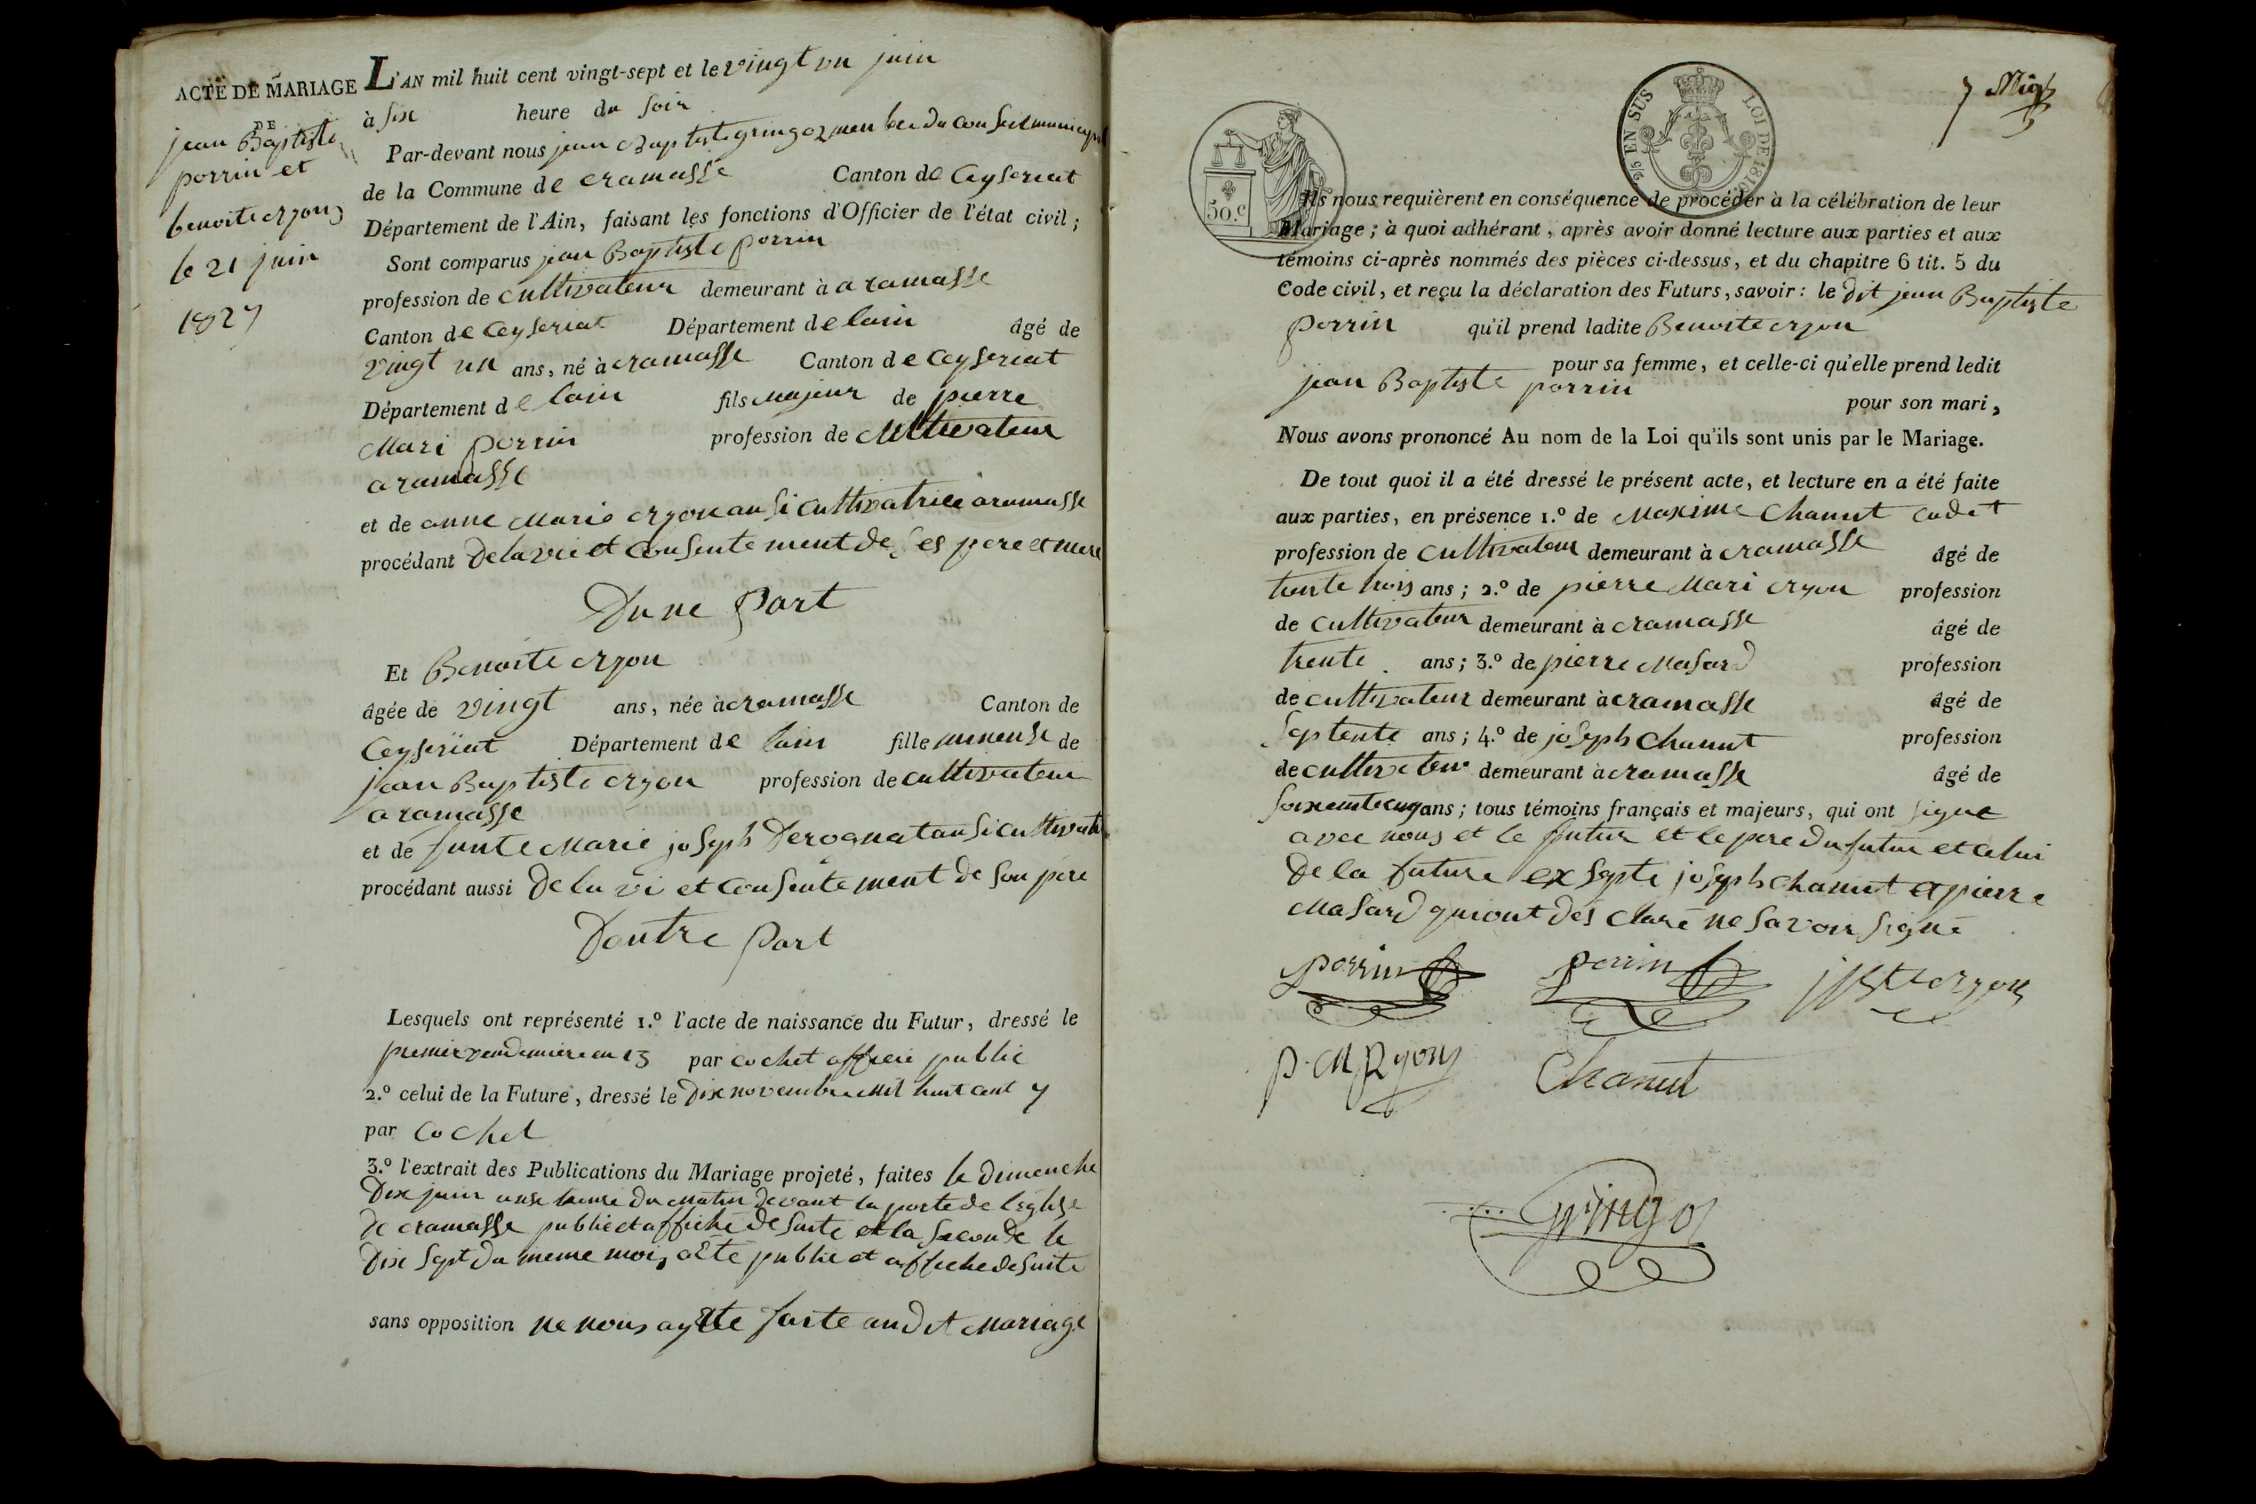 ACTE DE MARIAGE
DE
jean Baptiste
perrin et
benoite eryon
le 21 juin
1827
L'AN mil huit cent vingt-sept et le vingt un juin
à six heure du soir
Par-devant nous jean Baptiste gringoz membre du conseil municipal
de la Commune de cramasse Canton de Ceyseriat
Département de l'Ain, faisant les fonctions d'Officier de l'état civil;
Sont comparus jean Baptiste perrin
profession de cultivateur demeurant à aramasse
Canton de Ceyseriat Département de lain âgé de
vingt un ans, né à cramasse Canton de Ceyseriat
Département de lain fils majeur de pierre
Mari perrin profession de Cultivateur
aramasse
et de anne Marie eryon ausi cultivatrice aramasse
procédant de lavie et consentement de ses pere et mere
Dune Part
Et Benoite eryon
âgée de vingt ans, née à cramasse Canton de
Ceyseriat Département de lain fille mineuse de
jean Baptiste eryon profession de cultivateur
aramasse
et de funte Marie joseph Derognat ausi cultivatr
procédant aussi de la vi et consentement de son pere
Doutre Part
Lesquels ont représenté 1.º l'acte de naissance du Futur, dressé le
premier vendemiere an 13 par cochet officie public
2.º celui de la Future, dressé le Dix novembre mil huit cent 7
par Cochet
3.º l'extrait des Publications du Mariage projeté, faites le dimenche
Dix juin onse heure du matin devant la porte de leglise
de cramasse publie et affiché de suite et la seconde le
Dix sept du meme mois aété publie et affiche de suite
sans opposition ne nous ayette faite audit Mariage
50.c
95 EN SUS LOI DE 1816
7
Ils nous requièrent en conséquence de procéder à la célébration de leur
Mariage; à quoi adhérant, après avoir donné lecture aux parties et aux
témoins ci-après nommés des pièces ci-dessus, et du chapitre 6 tit. 5 du
Code civil, et reçu la déclaration des Futurs, savoir: le dit jean Baptiste
perrin qu'il prend ladite Benoite eryon
pour sa femme, et celle-ci qu'elle prend ledit
jean Baptiste perrin
pour son mari,
Nous avons prononcé Au nom de la Loi qu'ils sont unis par le Mariage.
De tout quoi il a été dressé le présent acte, et lecture en a été faite
aux parties, en présence 1.º de Maxime Chanut cadet
profession de cultivateur demeurant à cramasse âgé de
trente trois ans; 2.º de pierre Mari eryon profession
de cultivateur demeurant à cramasse âgé de
trente ans; 3.º de pierre Masard profession
de cultivateur demeurant à cramasse âgé de
septente ans; 4.º de joseph Chanut profession
de cultivateur demeurant à cramasse âgé de
soixante cinq ans; tous témoins français et majeurs, qui ont signe
avec nous et le futur et le pere du futur et celui
de la future exsepte joseph chanut et pierre
Masard qui ont dés claré ne savoir signé
perrin perrin jBte eryon
p. M Ryon Chanut
Gringoz